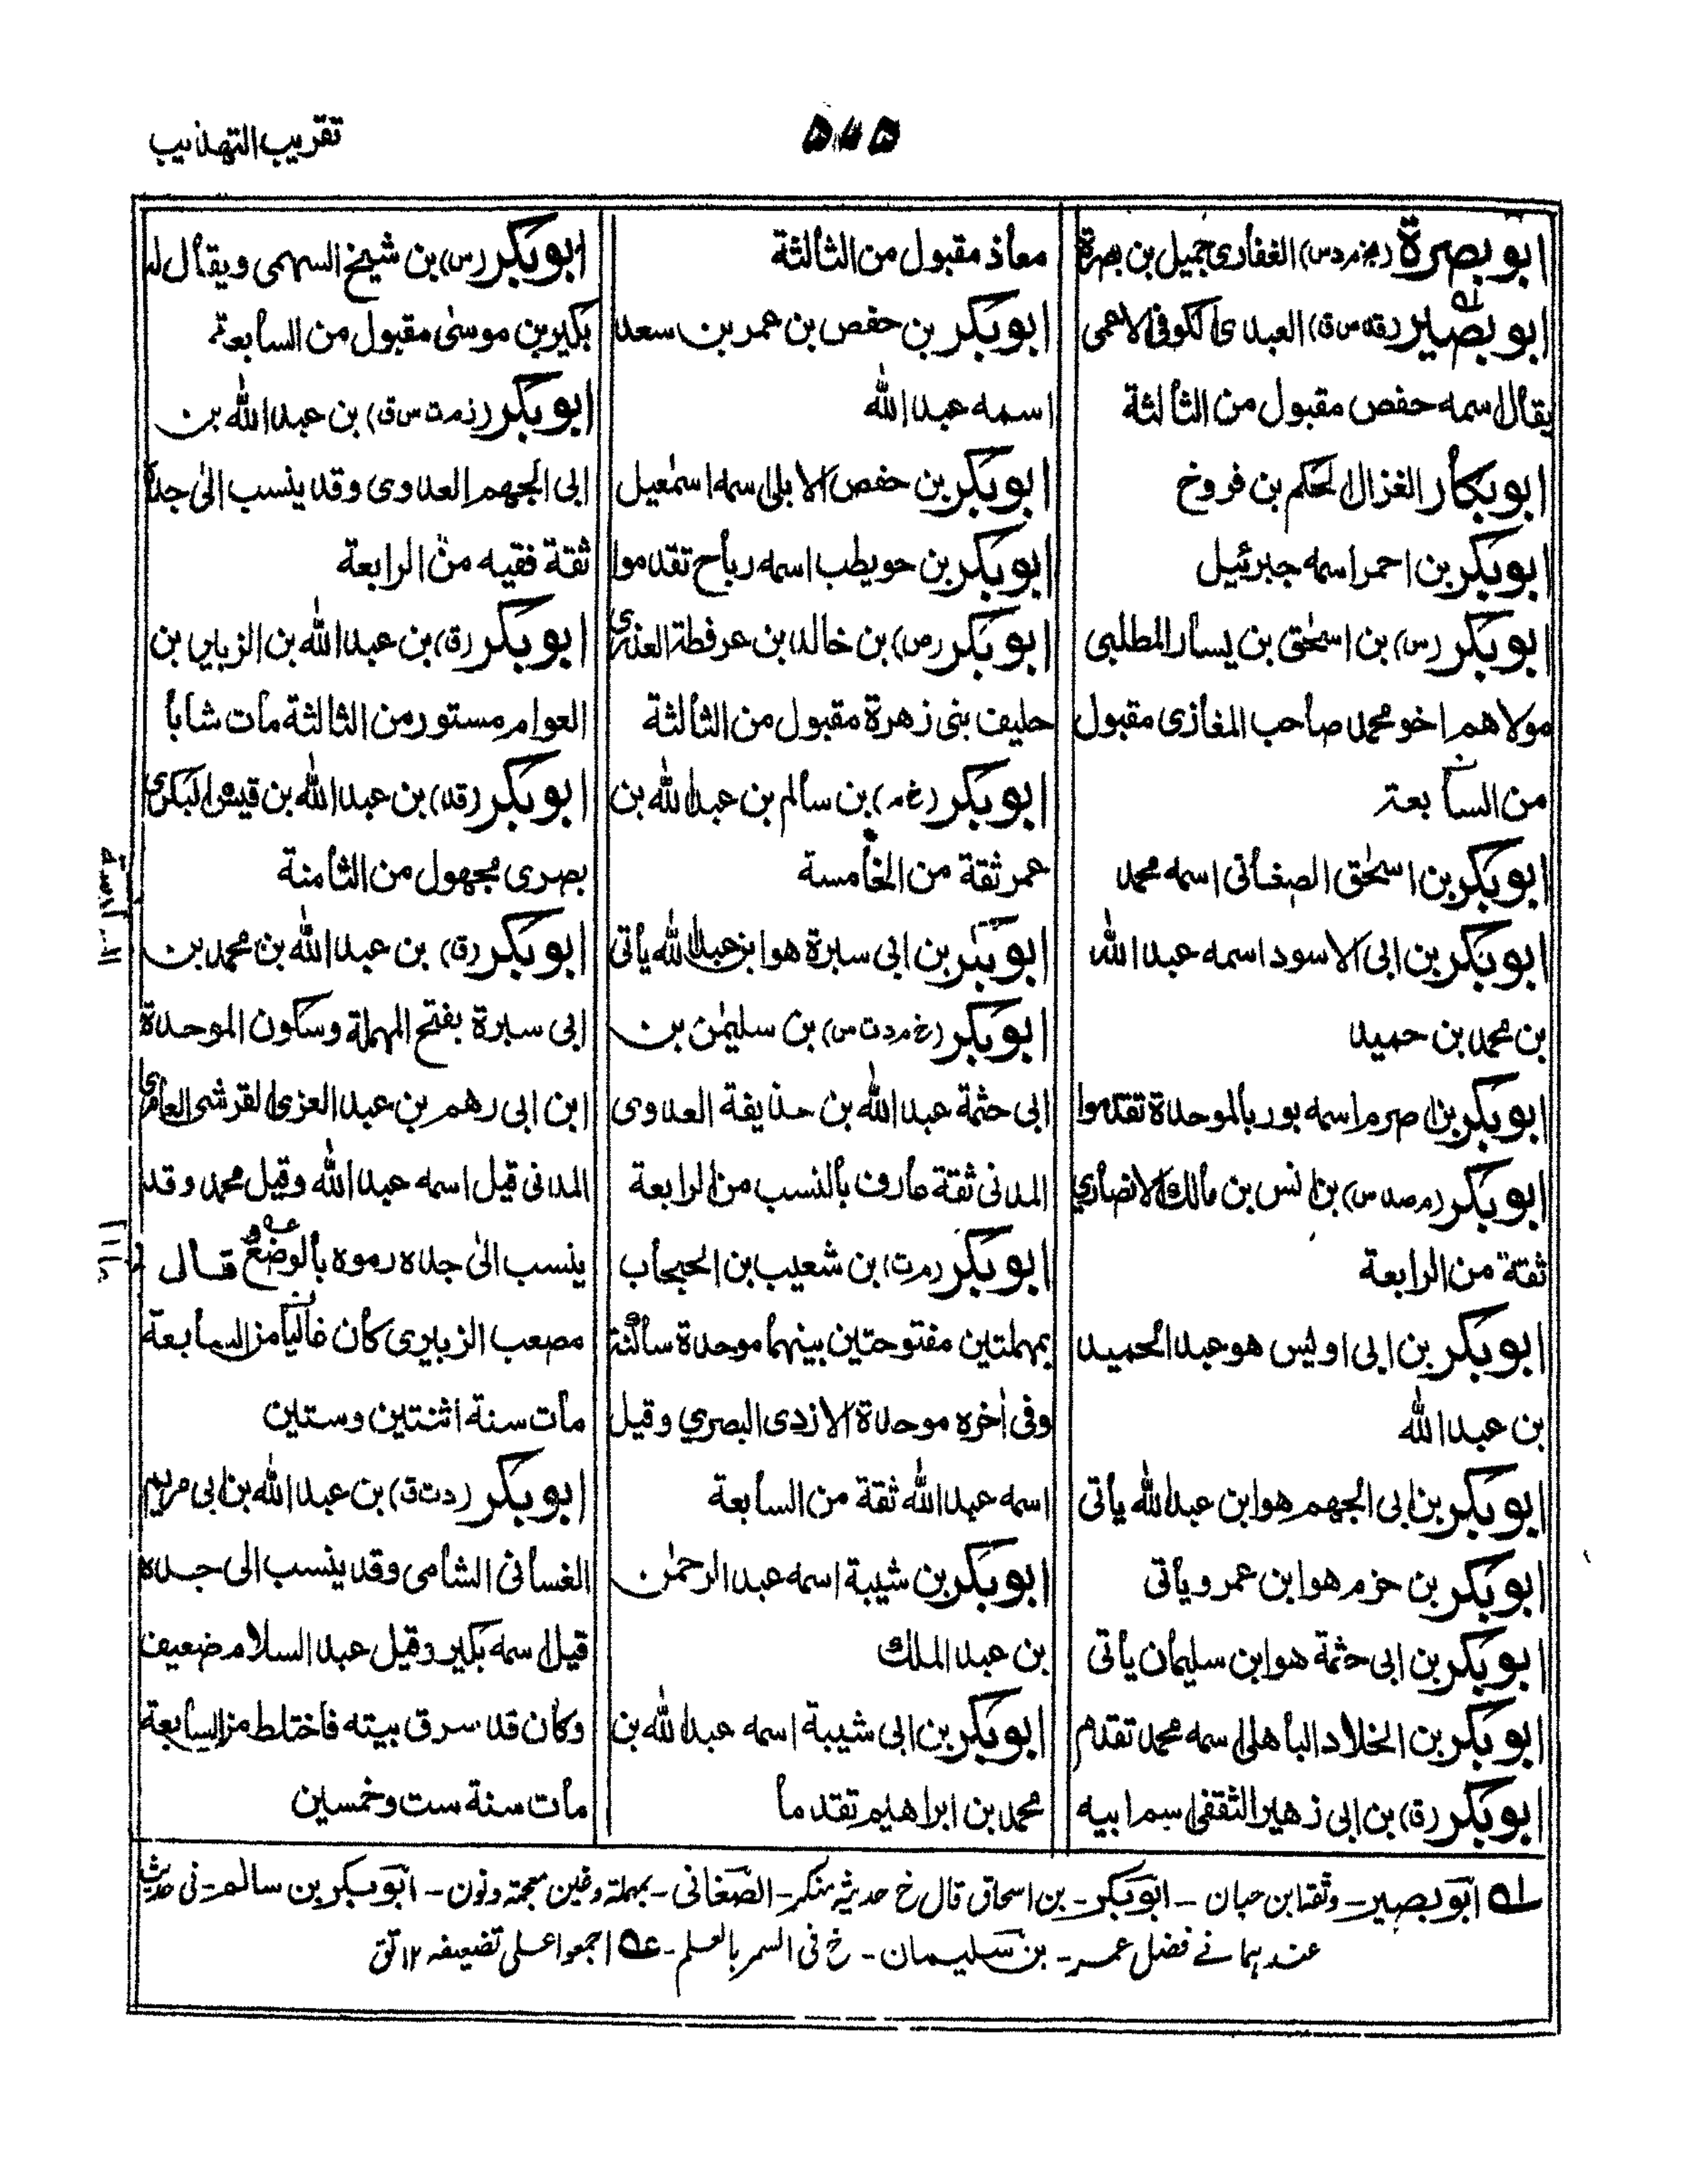 تقريب التهذيب
ابو بصرة (بخ م د س) الغفاري جميل بن بصرة
ابو بصير (قد س ق) العبدي الكوفي الاعمى
يقال اسمه حفص مقبول من الثالثة
ابو بكار الغزال الحكم بن فروخ
ابو بكر بن احمر اسمه جبرئيل
ابو بكر (س) بن اسحٰق بن يسار المطلبى
مولاهم اخو محمد صاحب المغازى مقبول
من السابعة
ابو بكر بن اسحٰق الصغانى اسمه محمد
ابو بكر بن ابى الاسود اسمه عبد الله
بن محمد بن حميد
ابو بكر بن اصرم اسمه بور بالموحدة تقدموا
ابو بكر (م صد س) بن انس بن مالك الانصاري
ثقة من الرابعة
ابو بكر بن ابى اويس هو عبد الحميد
بن عبد الله
ابو بكر بن ابى الجهم هو ابن عبد الله يأتى
ابو بكر بن حزم هو ابن عمرو يأتى
ابو بكر بن ابى حثمة هو ابن سليمان يأتى
ابو بكر بن الخلاد الباهلى اسمه محمد تقدم
ابو بكر (ق) بن ابى زهير الثقفى اسم ابيه
معاذ مقبول من الثالثة
ابو بكر بن حفص بن عمر بن سعد
اسمه عبد الله
ابو بكر بن حفص الابلى اسمه اسمٰعيل
ابو بكر بن حويطب اسمه رباح تقدموا
ابو بكر (ص) بن خالد بن عرفطة العذرى
حليف بنى زهرة مقبول من الثالثة
ابو بكر (خ م) بن سالم بن عبد الله بن
عمر ثقة من الخامسة
ابو بكر بن ابى سبرة هو ابن عبد الله يأتى
ابو بكر (خ م د ت س) بن سليمٰن بن
ابى حثمة عبد الله بن حذيفة العدوى
المدنى ثقة عارف بالنسب من الرابعة
ابو بكر (م ت) بن شعيب بن الحبحاب
بمهملتين مفتوحتين بينهما موحدة ساكنة
وفى أخره موحدة الازدى البصري وقيل
اسمه عبد الله ثقة من السابعة
ابو بكر بن شيبة اسمه عبد الرحمٰن
بن عبد الملك
ابو بكر بن ابى شيبة اسمه عبد الله بن
محمد بن ابراهيم تقدما
ابو بكر (س) بن شيخ السهمى ويقال له
بكير بن موسىٰ مقبول من السابعة
ابو بكر (ز م ت س ق) بن عبد الله بن
ابى الجهم العدوى وقد ينسب الىٰ جده
ثقة فقيه من الرابعة
ابو بكر (ق) بن عبد الله بن الزبير بن
العوام مستور من الثالثة مات شابا
ابو بكر (قد) بن عبد الله بن قيس البكرى
بصرى مجهول من الثامنة
ابو بكر (ق) بن عبد الله بن محمد بن
ابى سبرة بفتح المهملة وسكون الموحدة
ابن ابى رهم بن عبد العزى القرشى العامرى
المدنى قيل اسمه عبد الله وقيل محمد وقد
ينسب الىٰ جده رموه بالوضع قال
مصعب الزبيرى كان غالبا من السابعة
مات سنة اثنتين وستين
ابو بكر (د ت ق) بن عبد الله بن ابى مريم
الغسانى الشامى وقد ينسب الى جده
قيل اسمه بكير وقيل عبد السلام ضعيف
وكان قد سرق بيته فاختلط من السابعة
مات سنة ست وخمسين
ابو بصير - وثقه ابن حبان - ابو بكر - بن اسحاق قال خ حديثه منكر - الصغانى - بمهملة وغين معجمة ونون - ابو بكر بن سالم - فى حديث
عندهما فى فضل عمر - بن سليمان - خ فى السمر بالعلم - عه اجمعوا على تضعيفه ١٢ تق